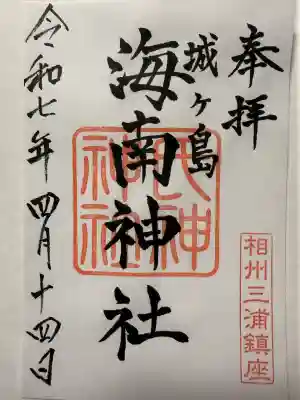 奉拝
城ヶ島
海南神社
令和七年四月十四日
相州三浦鎮座